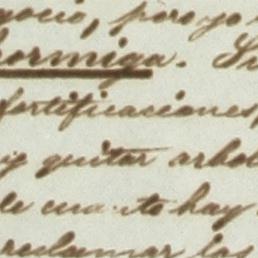 gocio, pero yo
hormiga. Su
fortificaciones,
y quitar arbol
de cuanto hay
reclamar los